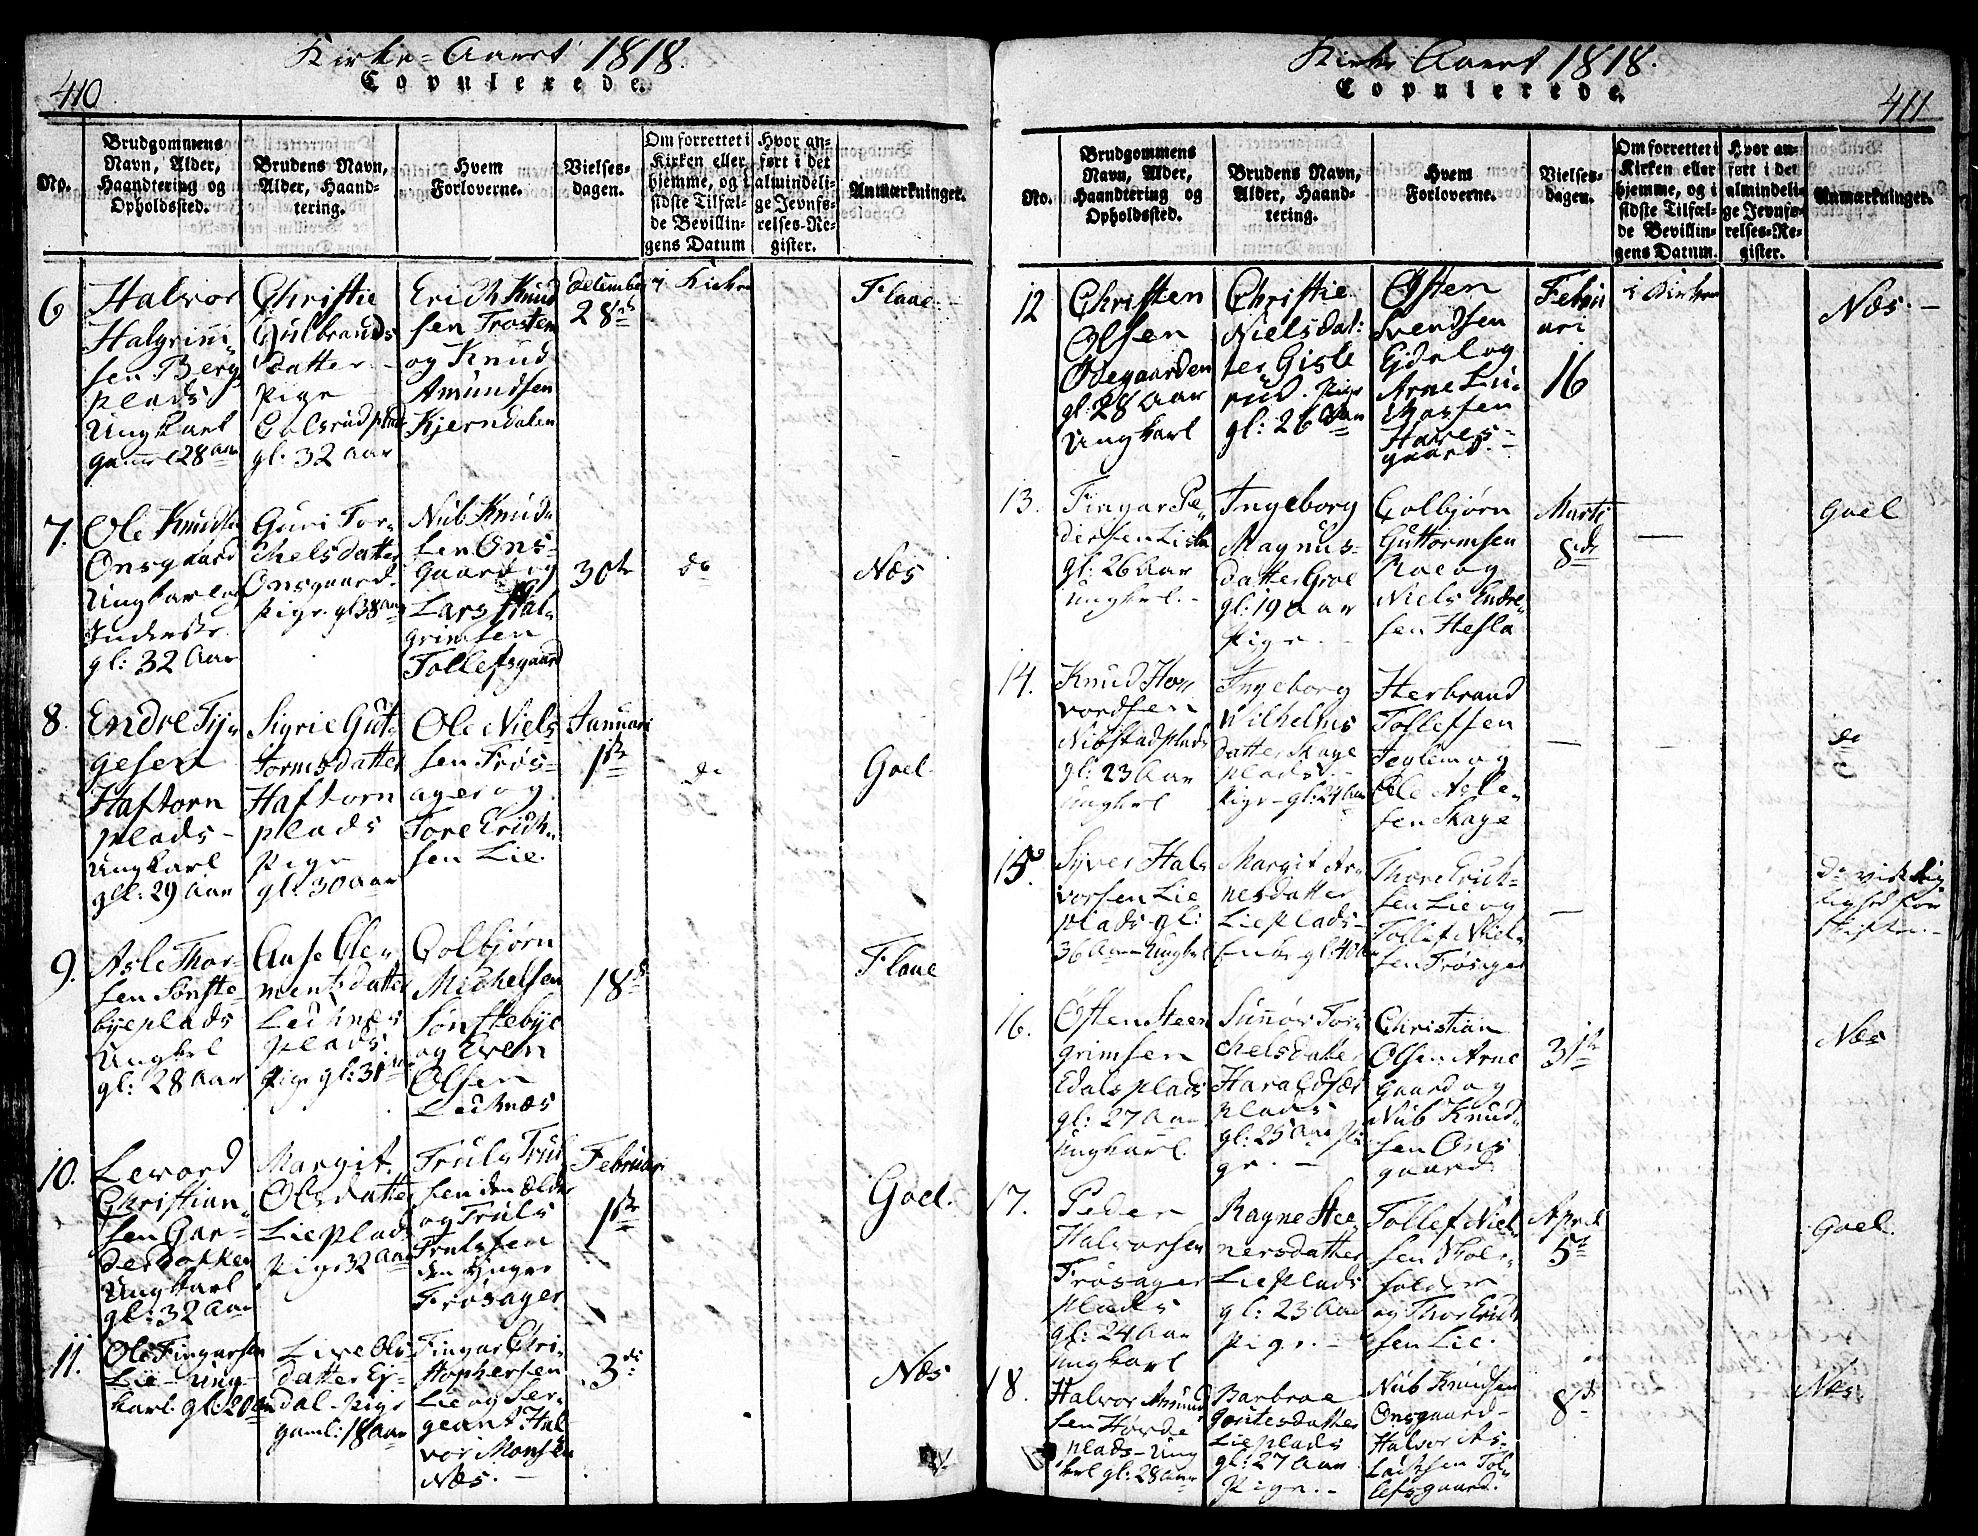 410.
Kirke-Aaret 1818.
Copulerede.
No.
Brudgommens
Navn, Alder,
Haandtering og
Opholdssted.
Brudens Navn,
Alder, Haand-
tering.
Hvem
Forloverne.
Vielses-
dagen.
Om forrettet i
Kirken eller
hjemme, og i
sidste Tilfæl-
de Bevillin-
gens Datum
Hvor an-
ført i det
almindeli-
ge Jevnfø-
relses-Re-
gister.
Anmærkninger.
6
Halvor
Halgrim
sen Berg
plads
Ungkarl
gamel 28 aar
Christie
Gulbrands
Datter
Pige
Golsrud plads
gl: 32 aar
Erich Knud
sen Trostem
og Knud
Amundsen
Kjerndalen
December
28de
i Kirken
Flaae.
7.
Ole Knudsen
Onsgaard
Ungkarl og
Inderste
gl: 32 Aar
Guri Tor-
chelsdatter
Onsgaard.
Pige gl 38 aar
Nub Knud
sen Ons-
gaard og
Lars Hal
grimsen
Tollefsgaard
30te
do
Næs
8.
Endre Try-
gesen
Haftorn
plads -
Ungkarl
gl: 29 Aar
Sigrie Gut-
tormsdatter
Haftorn
plads
Pige
gl: 30 aar
Ole Niels
sen Frøs-
ager og
Tore Erich-
sen Lie.
Januari
1ste
do
Goel.
9.
Asle Thor-
sen Sønste-
byeplads
Ungkel
gl: 28 Aar
Anse Cle-
mentsdatter
Lechnes
plads
Pige gl: 31 aar
Colbjørn
Michelsen
Sønstebye
og Even
Olsen
Lechnæs
18de
Flaae
10.
Levord
Christian-
sen Gar-
derbakken
Ungkarl
gl: 32 Aar
Margit
Olsdatter
Lieplads
Pige 32 Aar
Truls Trul
sen den Ælder
og Truls
Trulssen
den Yngre
Frøsager
Februar
1ste
Goel.
11.
Ole Fingarsen
Lie - Ung-
karl. gl: 20 aar
Live Ols-
datter Ej-
dal - Pige
gaml: 18 Aar
Fingar Chri-
stophersen
Lie og Ser-
geant Hal
vor Monsen
Næs. -
3de
Næs
411
Kirke Aaret 1818.
Copulerede.
No.
Brudgommens
Navn, Alder,
Haandtering og
Opholdssted.
Brudens Navn,
Alder, Haand-
tering.
Hvem
Forloverne.
Vielses-
dagen.
Om forrettet i
Kirken eller
hjemme, og i
sidste Tilfæl-
de Bevillin-
gens Datum.
Hvor an-
ført i det
almindeli-
ge Jevnfø-
relses-Re-
gister.
Anmærkninger.
12
Christen
Olsen
Ødegaarden
gl: 28 Aar
Ungkarl
Christie
Nielsdat:
ter Gisle
rud. Pige
gl: 26 Aar
Østen
Svendsen
Ejdal og
Arne
Hares-
gaard.
Febru
ari
16
i Kirken
Næs. -
13.
Fingar Pe-
dersen
gl: 26 Aar
Ungkrl. -
Ingeborg
Magnus-
datter Groe
gl: 19 Aar
Pige. -
Colbjørn
Guttormsen
Roe og
Niels Endre-
sen Hesla
Marti
8de
Goel
14.
Knud Hal
vordsen
Nibstadplads
gl: 23 Aar
Ungkrl
Ingeborg
Wilhelms
datter Skage
plads. -
Pige - gl: 24 Aar
Herbrand
Tollefsen
og
Ole Asle-
sen Skage
do
15.
Syver Hal-
vorsen Lie
plads gl:
36 Aar Ungkrl
Margit Ar-
nesdatter
Lieplads -
Enke gl: 40 Aar
Thore Erich-
sen Lie og
Tollef Niel-
sen Frøsager
16.
Østen Steen
grimsen
Edalsplads
gl: 27 Aar
Ungkarl.
Sunnøv Tor-
chelsdatter
Haraldsæt
plads
gl: 25 Aar Pi
ge. -
Christian
Olsen Arne
gaard og
Nub Knud-
sen Ons
gaard.
31te
Næs
17.
Peder
Halvorsen
Frøsager
plads
gl: 24 Aar
Ungkarl
Ragne Stee
nersdatter
Lieplads
gl: 23 Aar
Pige. -
Tollef Niel-
sen
og Thor Erich
sen Lie.
April
5te
Goel.
18.
Halvor Amund
sen Hørde
plads - Ung
krl gl: 28 Aar
Barbroe
Gontesdatter
Lieplads
gl: 27 Aar
Pige. -
Nub Knudsen
Onsgaard -
Halvor As-
lachsen Tol-
lefsgaard.
8de
Næs